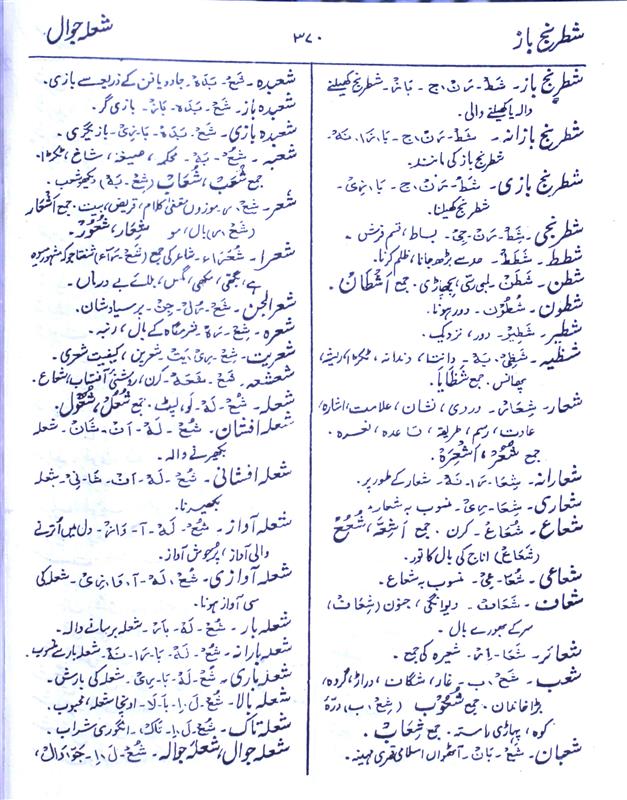 شطرنج باز
۳۷۰
شعلہ جوال
شطرنج باز۔ شَط۔ رَن٘ج۔ باز۔ شطرنج کھیلنے
والا یا کھیلنے والی۔
شطرنج بازانہ۔ شَط۔ رَن٘ج۔ با، زا، نَہ۔
شطرنج باز کی مانند۔
شطرنج بازی۔ شَط۔ رَن٘ج۔ با، زی۔
شطرنج کھیلنا۔
شطرنجی۔ شَط۔ رَن٘۔ جی۔ بساط، قسم فرش۔
شطط۔ شَطَط۔ حد سے بڑھ جانا، ظلم کرنا۔
شطن۔ شَطَن۔ لمبی رسی، پچھاڑی۔ جمع اَشطان۔
شطون۔ شُطُون۔ دور ہونا۔
شطیر۔ شَطِیر۔ دور، نزدیک۔
شظیہ۔ شَظِی۔ یَہ۔ دانتا، دندانہ، ٹکڑا، ریشہ،
پھانس۔ جمع شَظایا۔
شعار۔ شِعار۔ وردی، نشان، علامت، اشارہ،
عادت، رسم، طریقہ، قاعدہ، نعرہ۔
جمع شُعُر، اَشعِرَہ۔
شعارانہ۔ شِعا، را، نَہ۔ شعار کے طور پر۔
شعاری۔ شِعا، ری۔ منسوب بہ شعار۔
شعاع۔ شُعاع۔ کرن۔ جمع اَشِعَّہ، شُعُع
(شَعاع) اناج کی بال کا تور۔
شعاعی۔ شُعا۔ عی۔ منسوب بہ شعاع۔
شعاف۔ شَعاف۔ دیوانگی، جنون (شِعاف)
سر کے بھورے بال۔
شعائر۔ شَعا، اِر۔ شعیرہ کی جمع۔
شعب۔ شَع٘ب۔ غار، شگاف، دراڑ، گروہ،
بڑا خاندان۔ جمع شُعُوب (شِع٘ب) درّہ
کوہ، پہاڑی راستہ۔ جمع شِعاب۔
شعبان۔ شَع۔ بان۔ آٹھواں اسلامی قمری مہینہ۔
شعبدہ۔ شَع۔ بَدَہ۔ جادو یا فن کے ذریعے سے بازی۔
شعبدہ باز۔ شَع۔ بَدَہ۔ باز۔ بازی گر۔
شعبدہ بازی۔ شَع۔ بَدَہ۔ با، زی۔ بازیگری۔
شعبہ۔ شُع۔ بَہ۔ محکمہ، صیغہ، شاخ، ٹکڑا۔
جمع شُعَب، شُعاب (شِع۔ بَہ) دیکھو شعب۔
شعر۔ شِع٘ر۔ موزوں و مقفیٰ کلام، قریض، بیت۔ جمع اشعار
(شَع٘ر) بال، مو شِعار، شُعُور۔
شعرا۔ شُعَراء۔ شاعر کی جمع
شعر الجن۔ شَع۔ رُل۔ جِن۔ پرسیاوشان۔
شعرہ۔ شِع۔ رَہ۔ شرمگاہ کے بال،
شعریت۔ شِع۔ ری، یَت۔ شعر پن، کیفیت شعری۔
شعشعہ۔ شَع۔ شَعَہ۔ کرن، روشنی آفتاب، شعاع۔
شعلہ۔ شُع۔ لَہ۔ لو، لپٹ۔ جمع شُعَل، شُعُول۔
شعلہ افشان۔ شُع۔ لَہ۔ اَف۔ شان۔ شعلہ
بکھیرنے والا۔
شعلہ افشانی۔ شُع۔ لَہ۔ اَف۔ شا، نی۔ شعلہ
بکھیرنا۔
شعلہ آواز۔ شُع۔ لَہ۔ آ۔ واز۔ دل میں اُترنے
والی آواز، پُرجوش آواز۔
شعلہ آوازی۔ شُع۔ لَہ۔ آ، وا، زی۔ شعلہ کی
سی آواز ہونا۔
شعلہ بار۔ شُع۔ لَہ۔ بار۔ شعلہ برسانے والا۔
شعلہ بارانہ۔ شُع۔ لَہ۔ با، را، نَہ۔ شعلہ بار سے منسوب۔
شعلہ باری۔ شُع۔ لَہ۔ با، ری۔ شعلہ کی بارش۔
شعلہ بالا۔ شُع۔ لَ، اِ۔ با، لا۔ اونچا شعلہ، محبوب۔
شعلہ تاک۔ شُع۔ لَ، اِ۔ تاک۔ انگوری شراب۔
شعلہ جوال، شعلہ جوالہ۔ شُع۔ لَ، اِ۔ جَوّال،